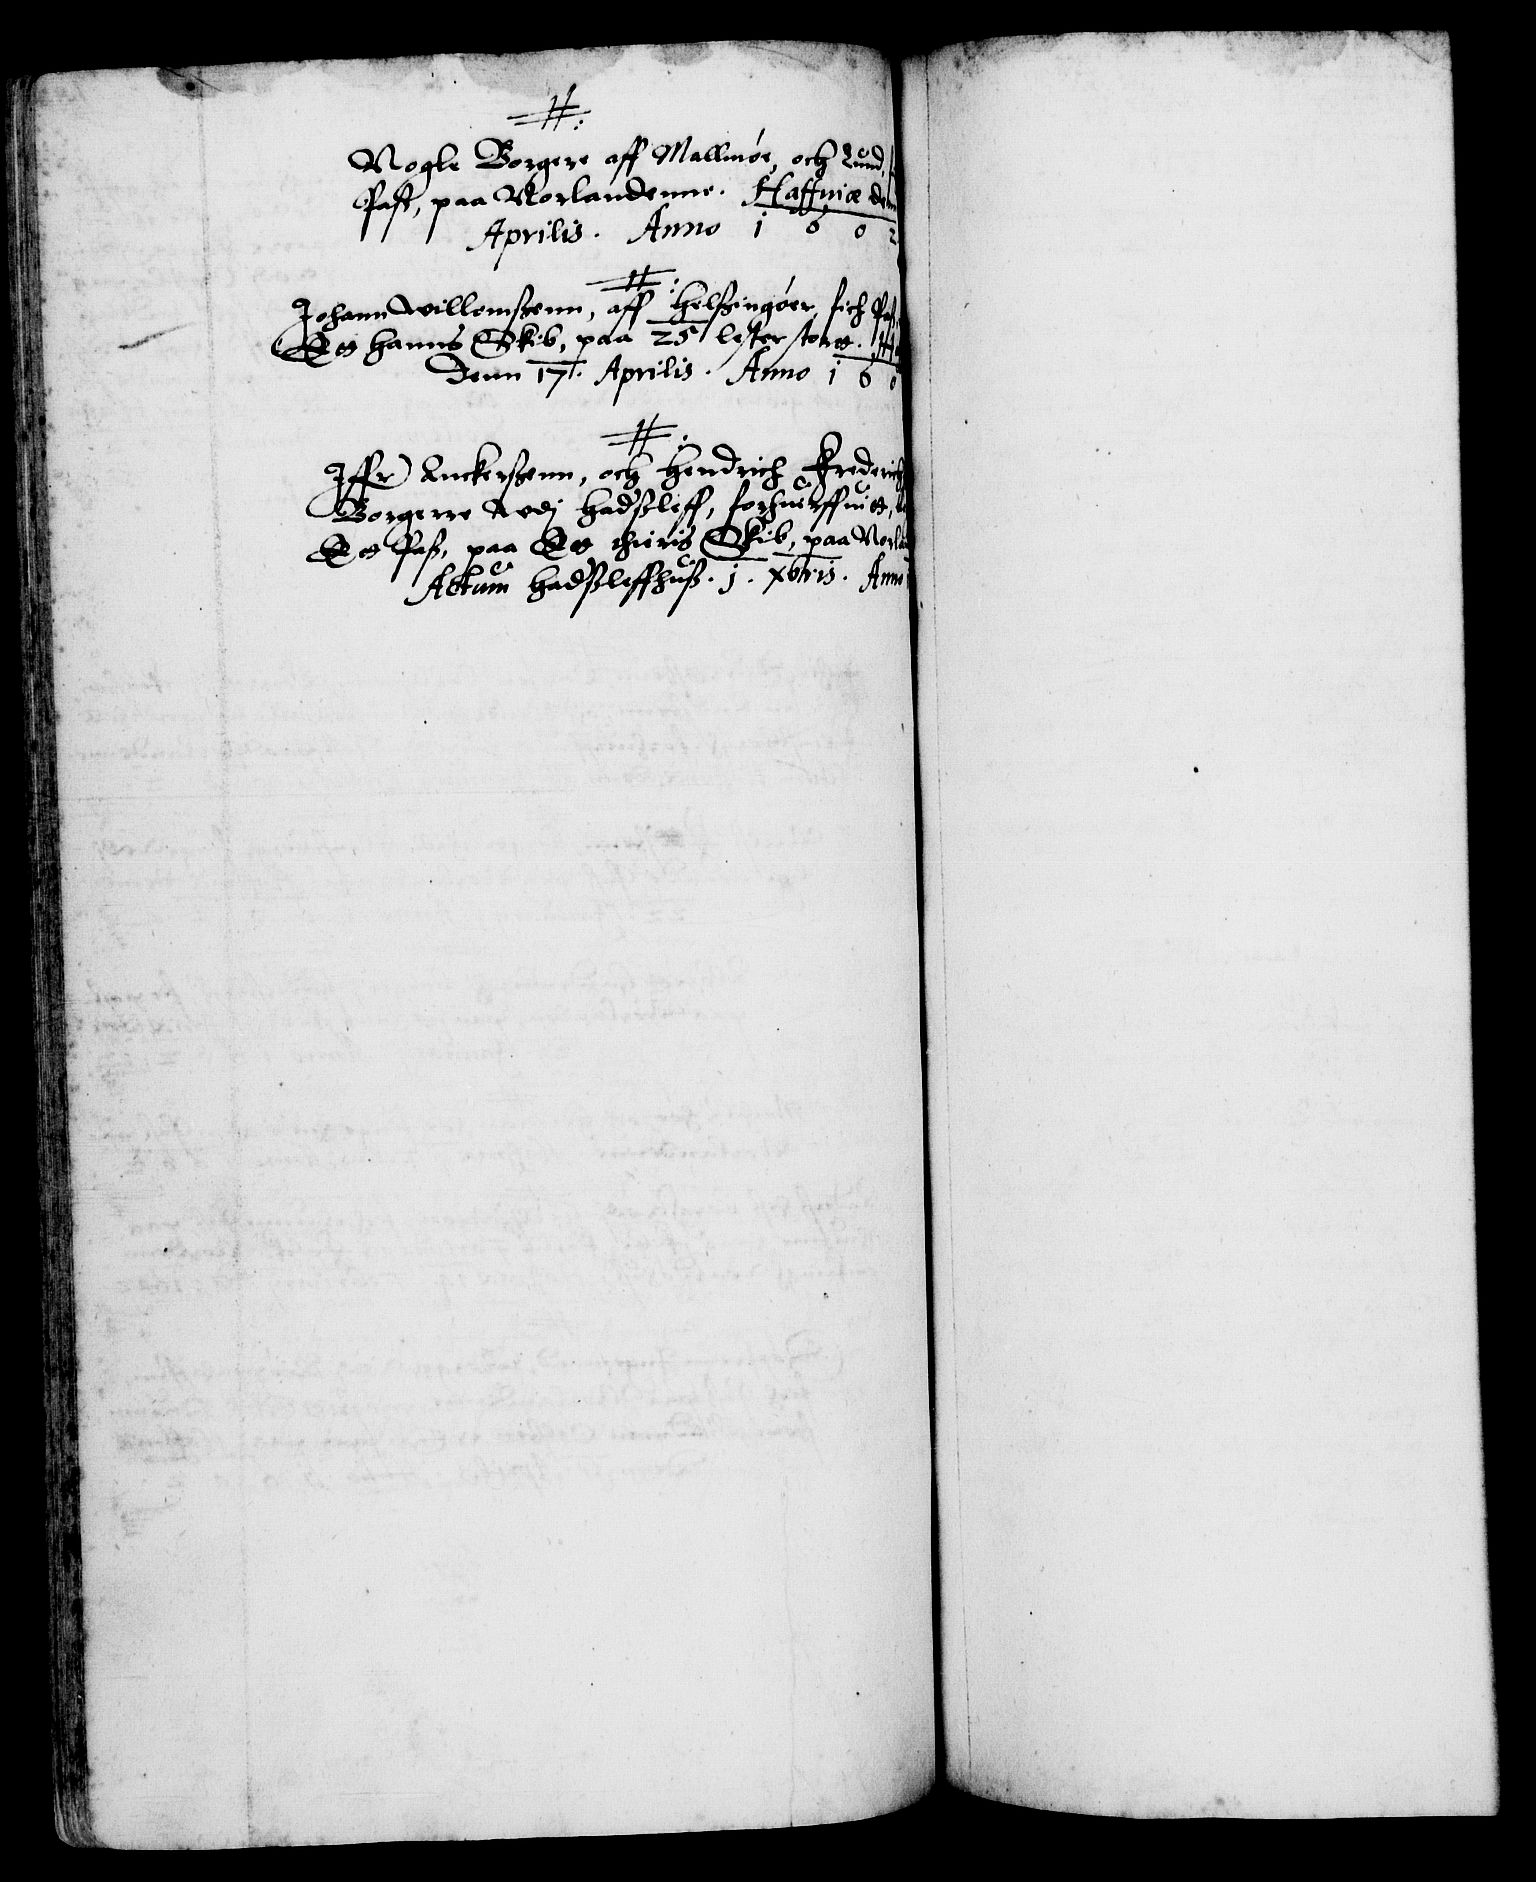 Nogle Borgere aff Mallmøe, och Lund,
Past, paa Norlandenne. Haffniæ den
Aprilis. Anno 1 6 0 2
Johann Willomssenn, aff Helssingøer, fich Pas,
Et hanns Skib, paa 25 lester store.
Denn 17. Aprilis. Anno 1 6 0
Iffr) Anckerssenn, och Hendrich Frederich
Borgerre Vdj Hadssleff, forhuerffuit,
Et Pass, paa Et theris Skib, paa Norlan
Actum Hadssleffhuss. j. xbris. Anno